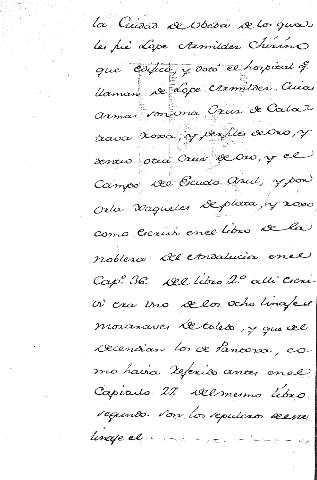 la Ciudad de Ubeda de los qua
les fué Lope Armildez Chirino
que edificó, y dotó el hospital q̃
llaman de Lope Armildez. Cuias
Armas son una Cruz de Cala=
trava roxa, y perfiles de oro, y
dentro otra Cruz de Oro, y el
Campo del Escudo Azul, y por
Orla Xaqueles de plata, y roxo
como escriví en el libro de la
nobleza del Andalucia en el
Capº. 36. del libro 2º. alli escri
vi era Uno de los ocho linajes
Mozaraves de toledo, y que del
decendian los de Pantoxa, co-
mo havia referido antes en el
Capitulo 27. del mesmo libro
segundo. son los sepulcros de este
linaje el